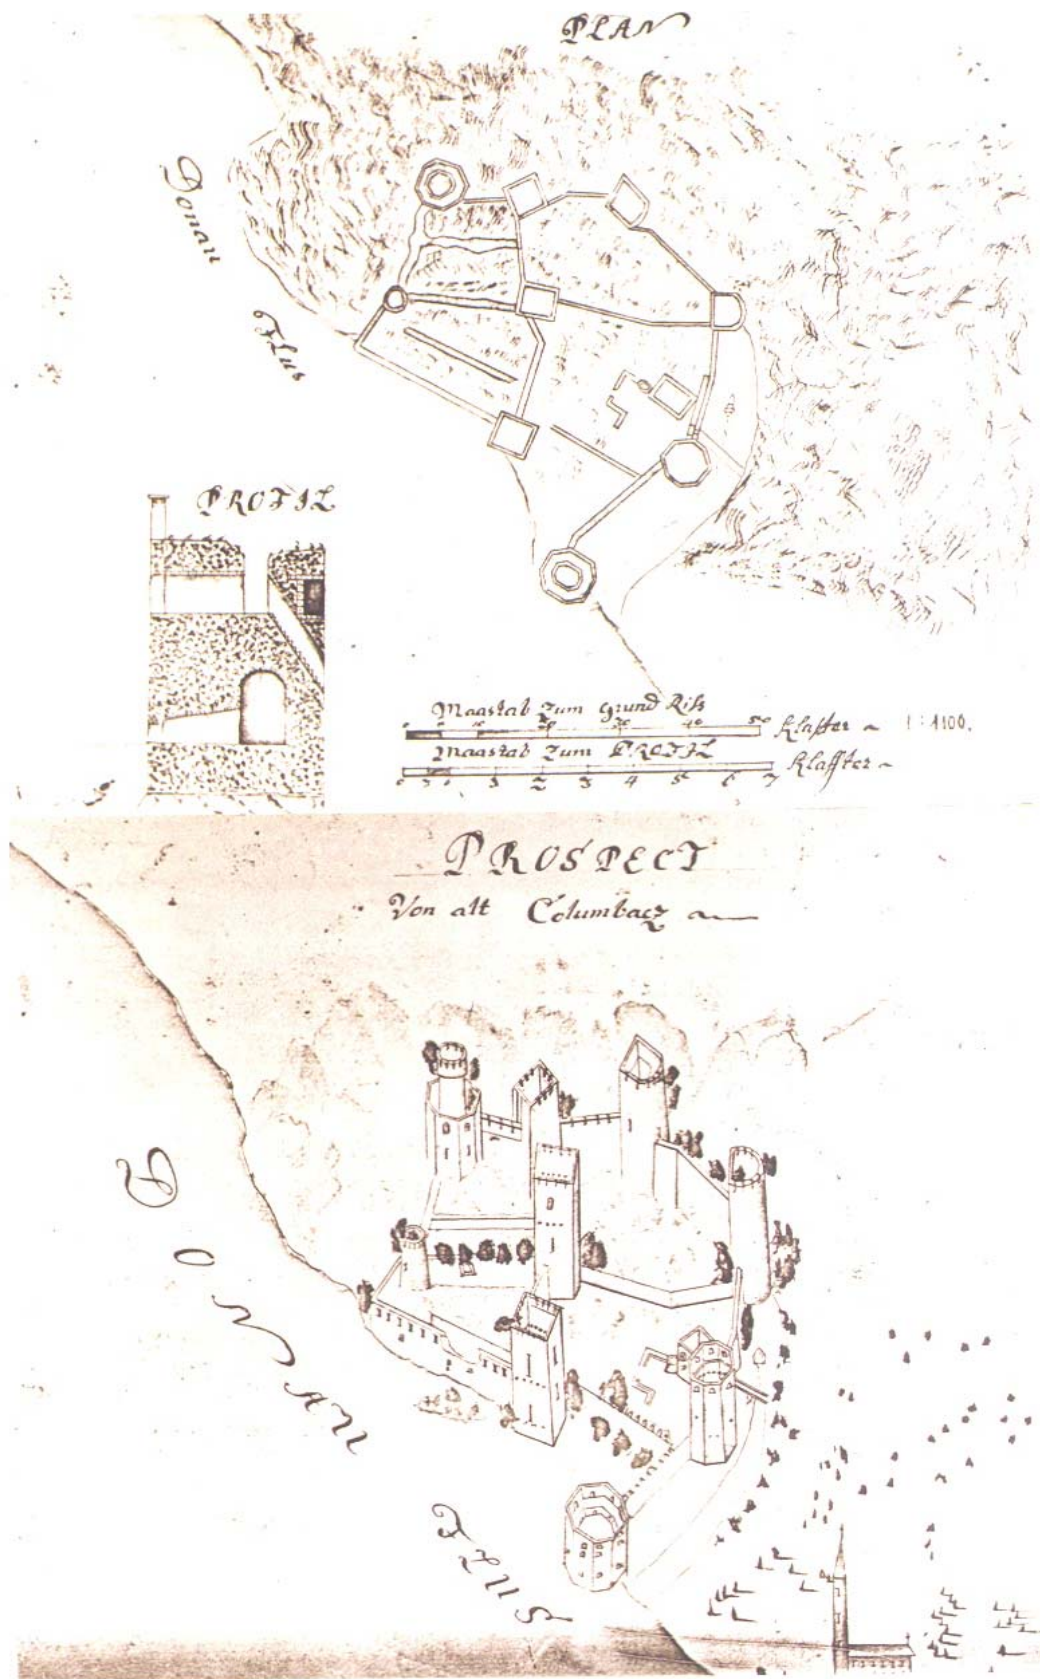 PLAN
Donau
Flus
PROFIL
Maasstab zum grund Riss
0 10 20 30 40 50 Klaffter 1:1100.
Maastab zum PROFIL
0 3 0 1 2 3 4 5 6 7 Klaffter
PROSPECT
Von alt Columbacz
DONAU
FLUS